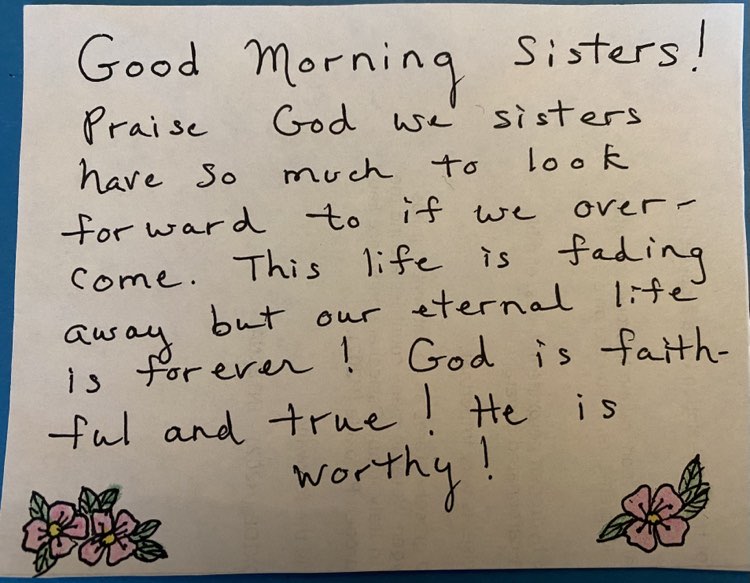 Good Morning Sisters!
Praise God we sisters
have so much to look
forward to if we over-
come. This life is fading
away but our eternal life
is forever! God is faith-
ful and true! He is
worthy!